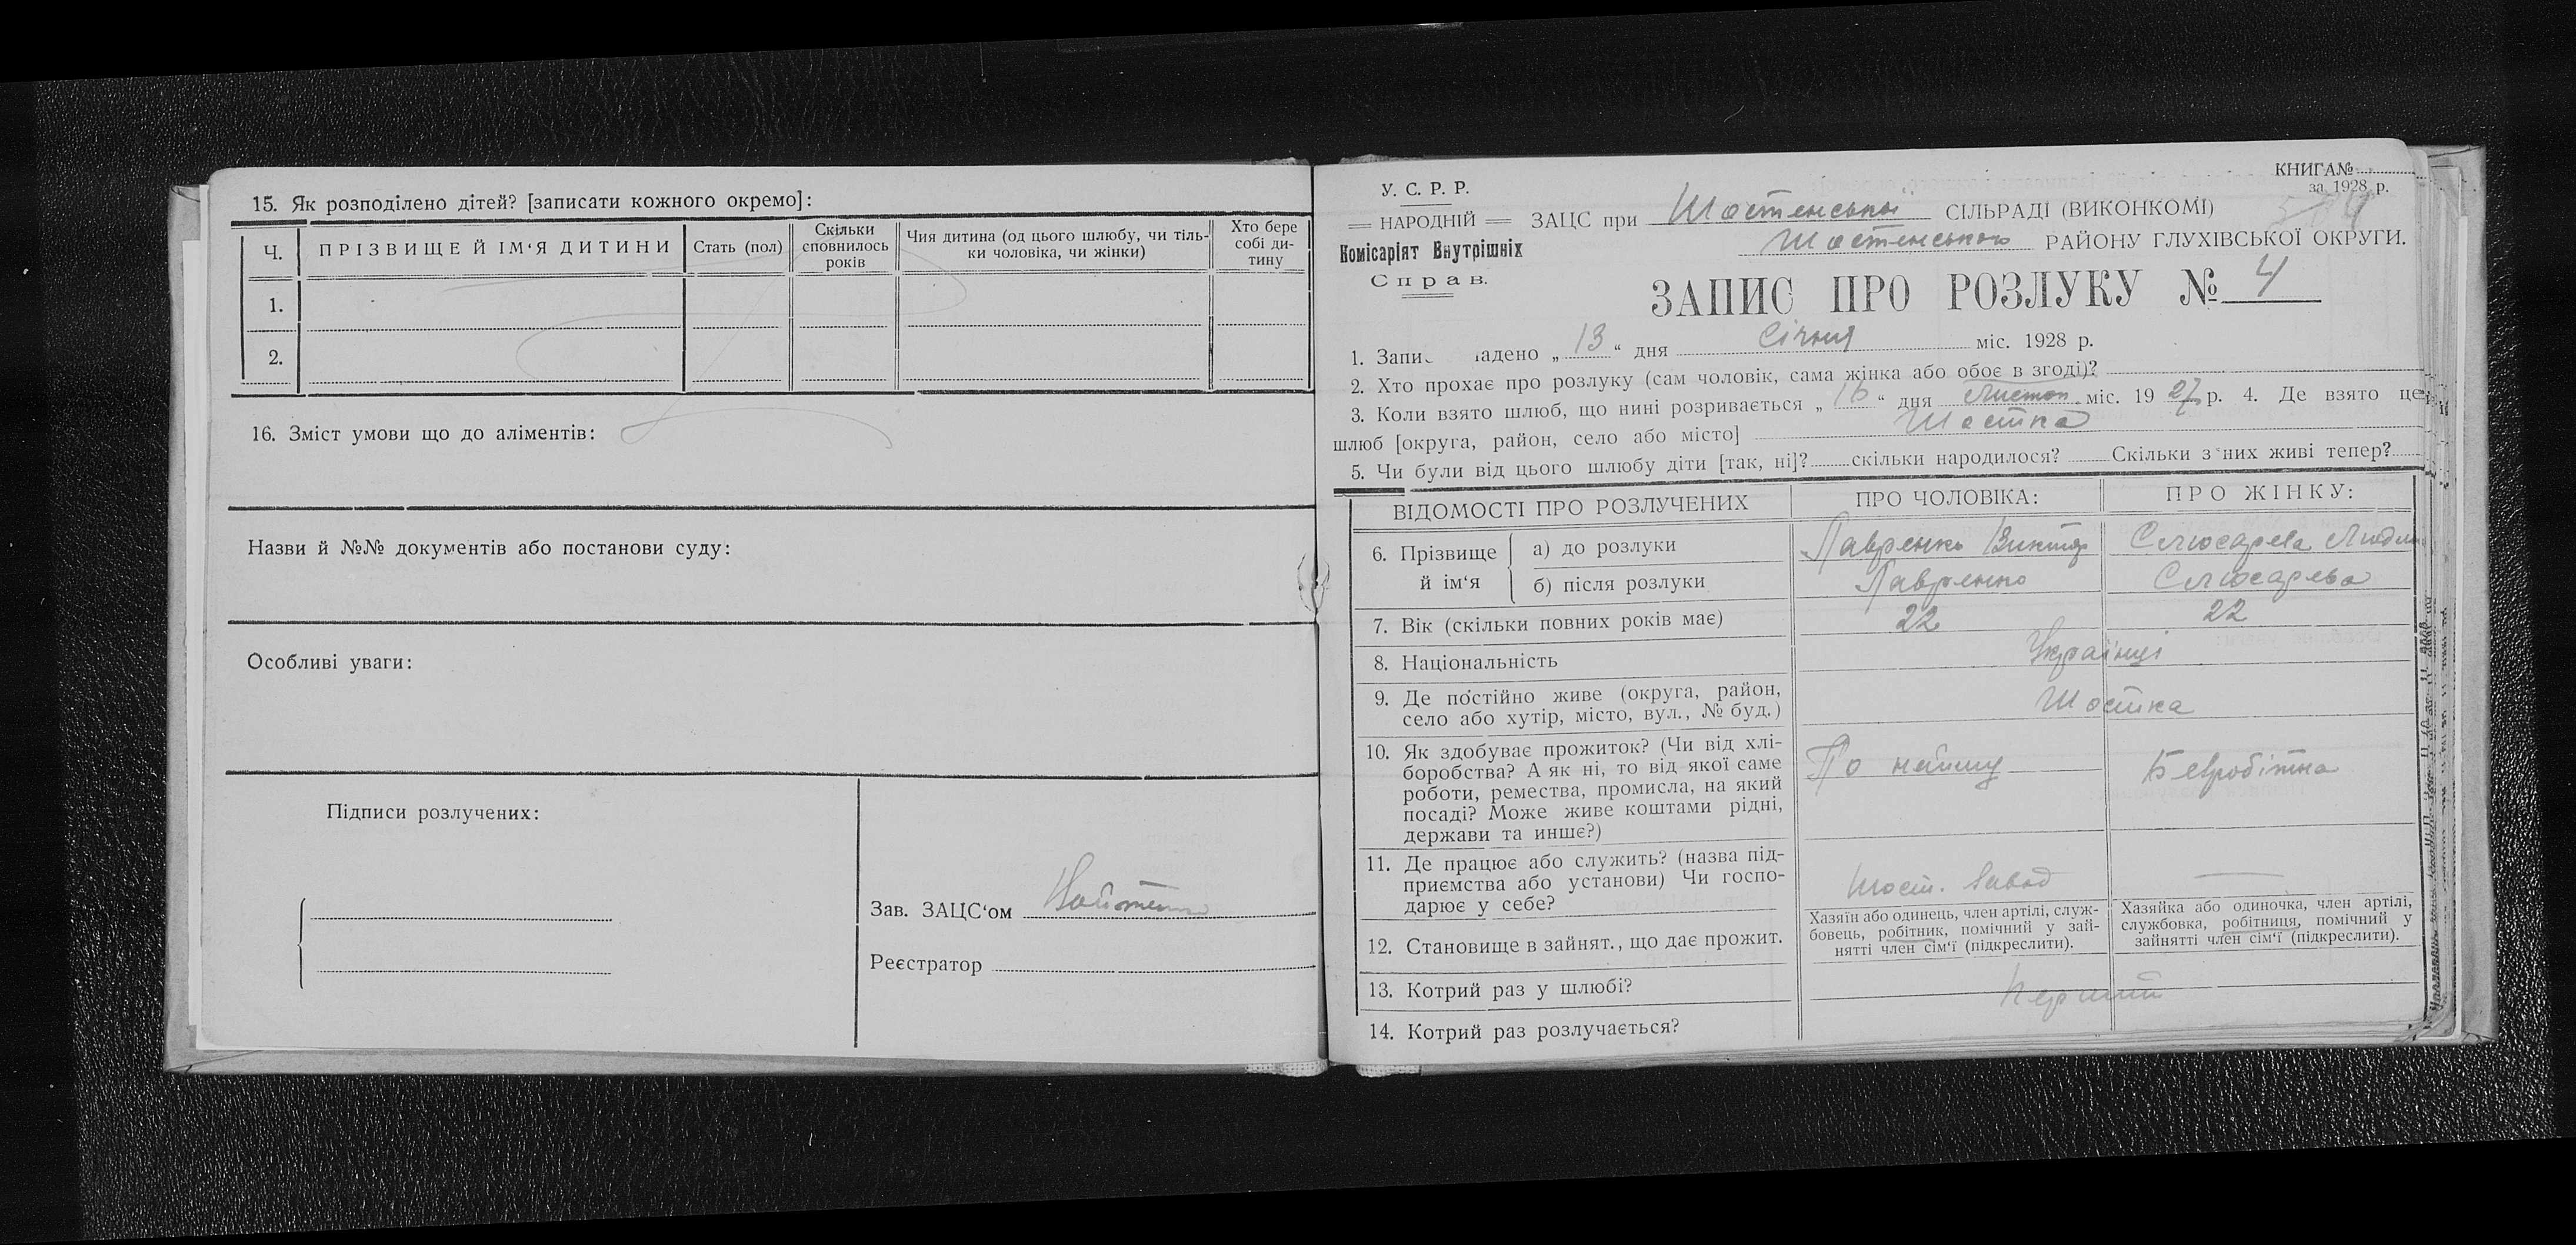 15. Як розподілено дітей? [записати кожного окремо]:
Ч. ПРІЗВИЩЕ Й ІМ'Я ДИТИНИ Стать (пол) Скільки сповнилось років Чия дитина (од цього шлюбу, чи тіль-ки чоловіка, чи жінки) Хто бере собі ди-тину
1.
2.
16. Зміст умови що до аліментів:
Назви й №№ документів або постанови суду:
Особливі уваги:
Підписи розлучених:
Зав. ЗАЦС'ом
Реєстратор
КНИГА №
за 1928 р.
У. С. Р. Р.
НАРОДНІЙ
Комісаріят Внутрішніх
Справ.
ЗАЦС при Шостенській СІЛЬРАДІ (ВИКОНКОМІ)
Шостенського РАЙОНУ ГЛУХІВСЬКОЇ ОКРУГИ.
ЗАПИС ПРО РОЗЛУКУ № 4
1. Запис ладено „13“ дня Січня міс. 1928 р.
2. Хто прохає про розлуку (сам чоловік, сама жінка або обоє в згоді)?
3. Коли взято шлюб, що нині розривається „16“ дня Листоп. міс. 1927 р. 4. Де взято цей
шлюб [округа, район, село або місто] Шостка
5. Чи були від цього шлюбу діти [так, ні]? скільки народилося? Скільки з них живі тепер?
ВІДОМОСТІ ПРО РОЗЛУЧЕНИХ ПРО ЧОЛОВІКА: ПРО ЖІНКУ:
6. Прізвище й ім'я а) до розлуки Лавренко Виктор Слюсарева Людм
б) після розлуки Лавренко Слюсарева
7. Вік (скільки повних років має) 22 22
8. Національність Українці
9. Де постійно живе (округа, район,
село або хутір, місто, вул., № буд.) Шостка
10. Як здобуває прожиток? (Чи від хлі-
боробства? А як ні, то від якої саме
роботи, ремества, промисла, на який
посаді? Може живе коштами рідні,
держави та инше?)
По найму Безробітна
11. Де працює або служить? (назва під-
приємства або установи) Чи госпо-
дарює у себе?
Шост. Завод —
12. Становище в зайнят., що дає прожит.
Хазяїн або одинець, член артілі, служ-
бовець, робітник, помічний у зай-
нятті член сім'ї (підкреслити).
Хазяйка або одиночка, член артілі,
службовка, робітниця, помічний у
зайнятті член сім'ї (підкреслити).
13. Котрий раз у шлюбі? Перший
14. Котрий раз розлучається?